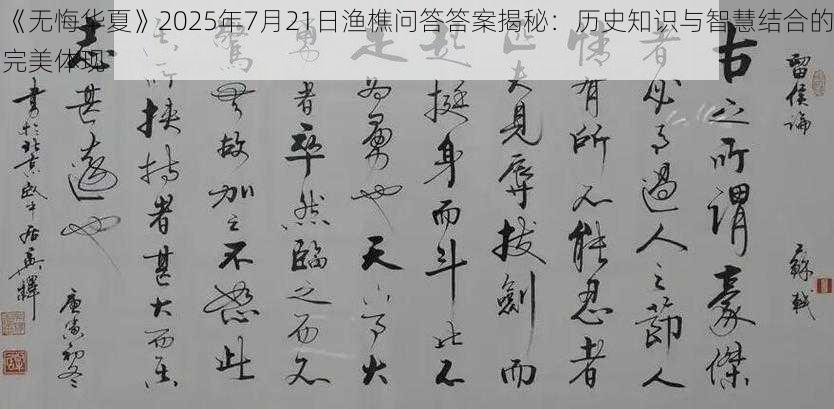 《无悔华夏》2025年7月21日渔樵问答答案揭秘：历史知识与智慧结合的
完美体现
留侯論 蘇軾
古之所謂豪傑
者必有過人之節人
情有所不能忍者
匹夫見辱拔劍而
起挺身而斗此不
足為勇也天下有大
勇者卒然臨之而不
驚無故加之不怒此
其所挾持者甚大而其
志甚遠也
庚寅初冬
書於北京